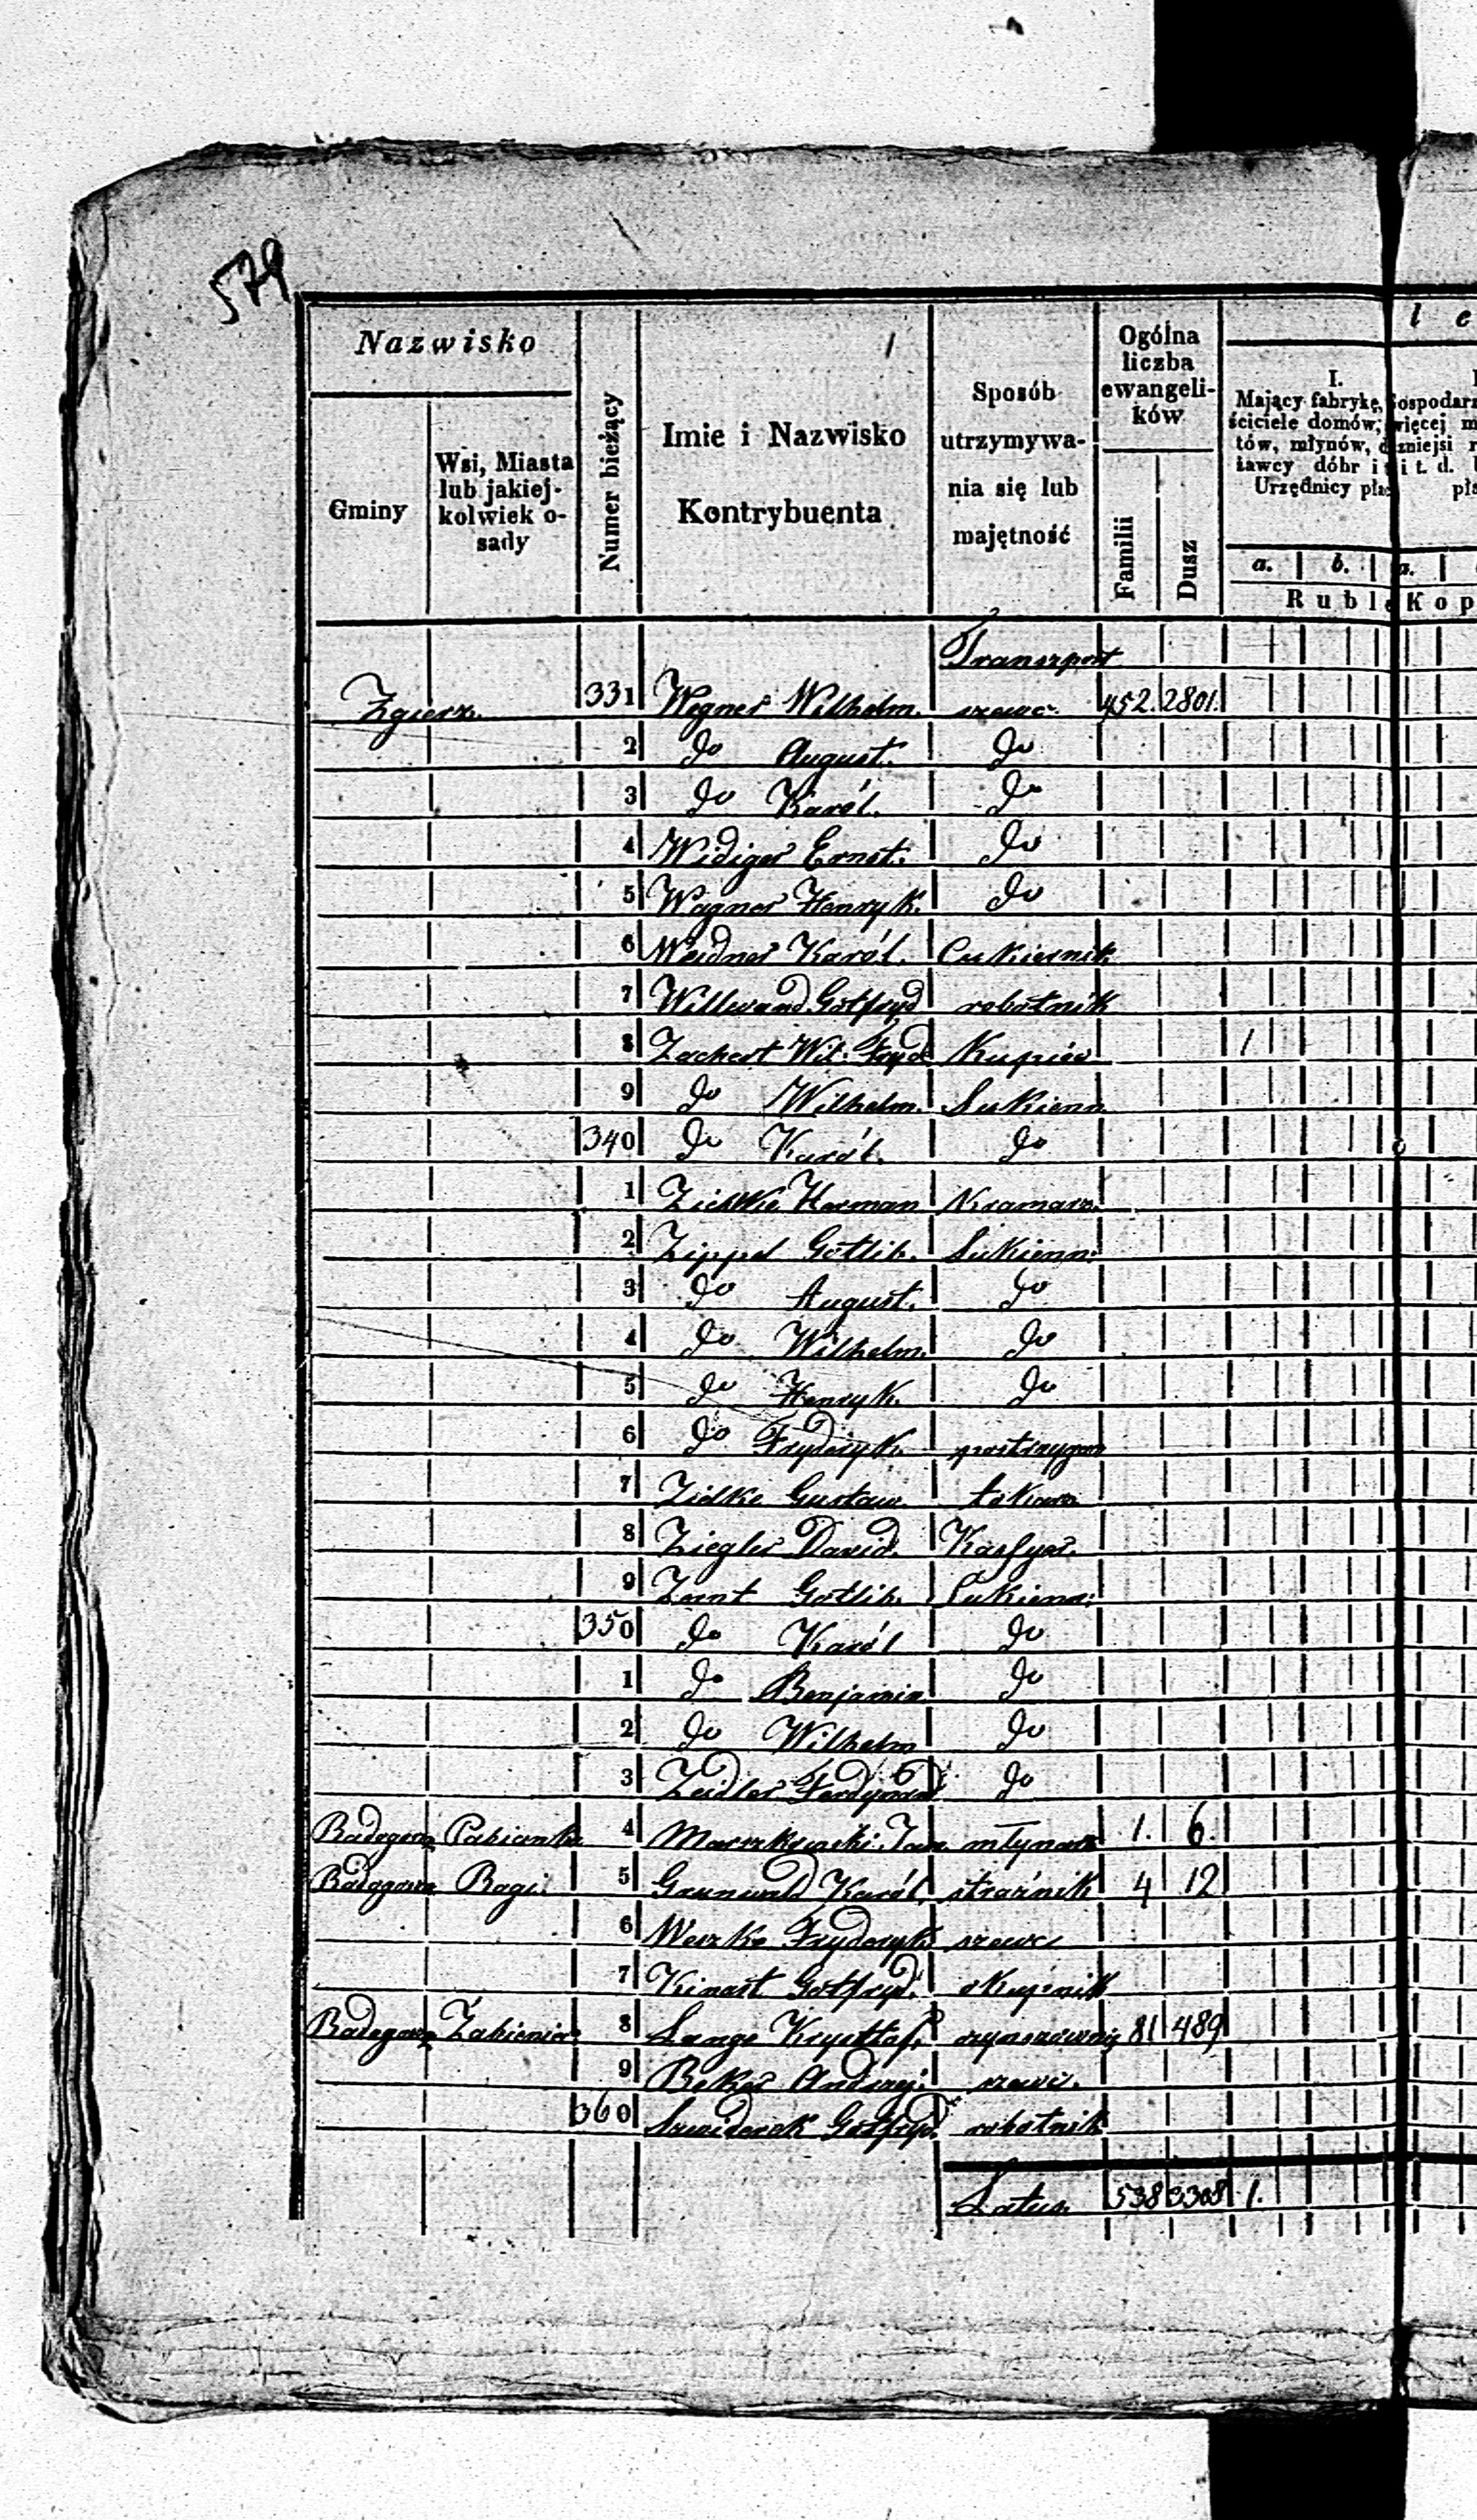 579
Nazwisko
Gminy
Wsi, Miasta lub jakiej-kolwiek o-sady
Numer bieżący
Imie i Nazwisko Kontrybuenta
Sposób utrzymywa-nia się lub majętność
Ogólna liczba ewangeli-ków
Familii
Dusz
I.
Mający fabrykę,
ściciele domów,
tów, młynów, d
ławcy dóbr i
Urzędnicy pła
a. b. a.
Rubl Kop
Transport
Zgierz 331 Wegner Wilhelm. szewc. 452. 2801.
2 do August. do
3 do Karól. do
4 Widiger Ernst. do
5 Wagner Henryk. do
6 Weidner Karól. Cukiernik
7 Gotfryd robotnik
8 Zachert Wil. Fryd Kupiec 1
9 do Wilhelm. Sukienn
340 do Karól. do
1 Herman Kramarz
2 Zippel Gotlib. Sukienn:
3 do August. do
4 do Wilhelm. do
5 do Henryk. do
6 do Fryderyk. postrzygacz
7 Zielke Gustaw tokarz
8 Ziegler David. Kassyer.
9 Zernt Gotlib. Sukienn:
350 do Karól do
1 do Benjamin do
2 do Wilhelm do
3 Zeidler Ferdynand do
Radogoszcz Pabianka 4 Jan. młynarz 1. 6.
Radogoszcz Rogi 5 Grunwald Karól. strażnik 4 12
6 Weszke Fryderyk. szewc
7 Kinast Gotfryd. okupnik
Radogoszcz Żabieniec 8 Lange Krysttof. czynszownik 81 489
9 Beker Andrzej. szewc.
360 Gotfryd. robotnik
Latus 538 3308 1.